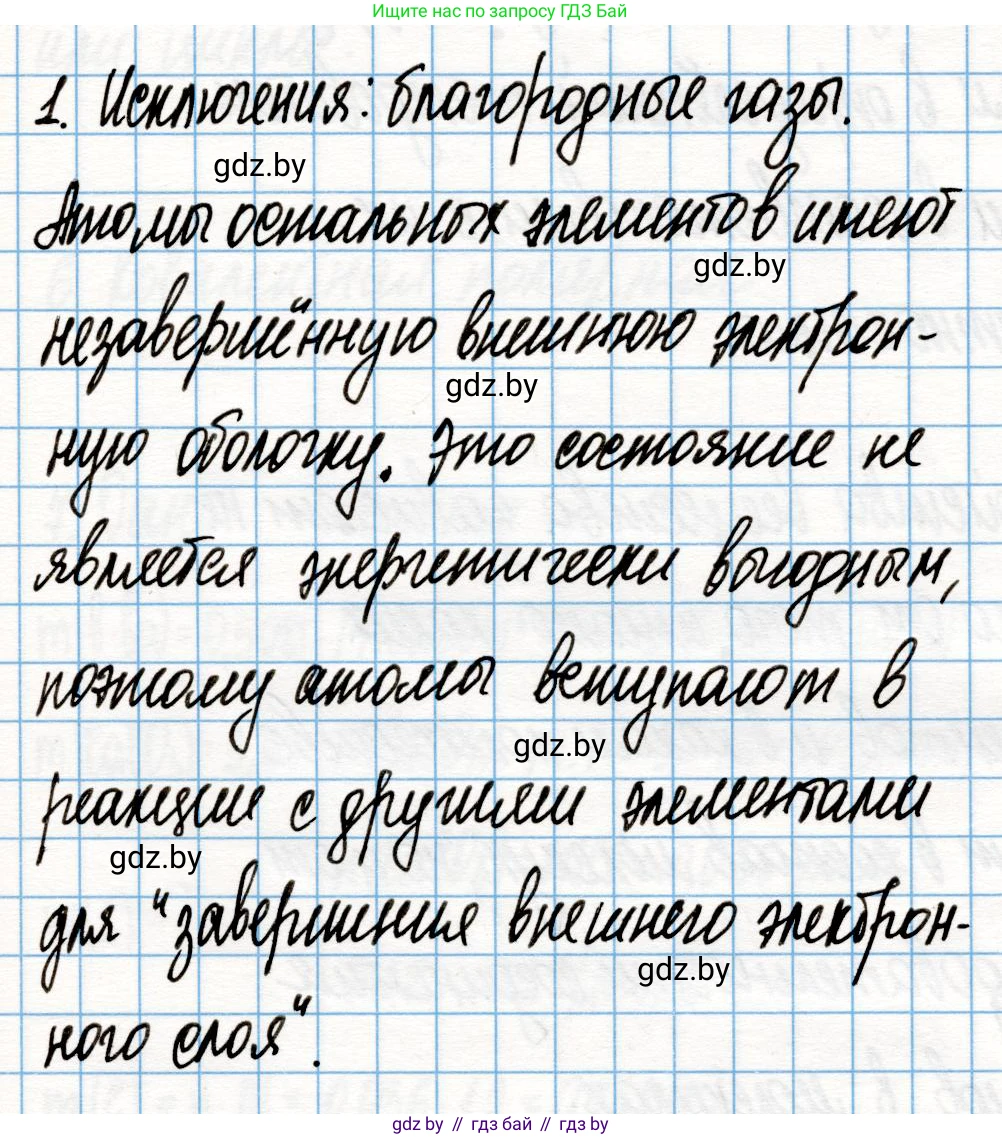 Ищите нас по запросу ГДЗ Бай
1. Исключения: благородные газы.
gdz.by
Атомы остальных элементов имеют
gdz.by
незавершённую внешнюю электрон-
gdz.by
ную оболочку. Это состояние не
является энергетически выгодным,
поэтому атомы вступают в
gdz.by
реакции с другими элементами
gdz.by
для "завершения внешнего электрон-
gdz.by
ного слоя".
gdz.by // гдз бай // gdz.by